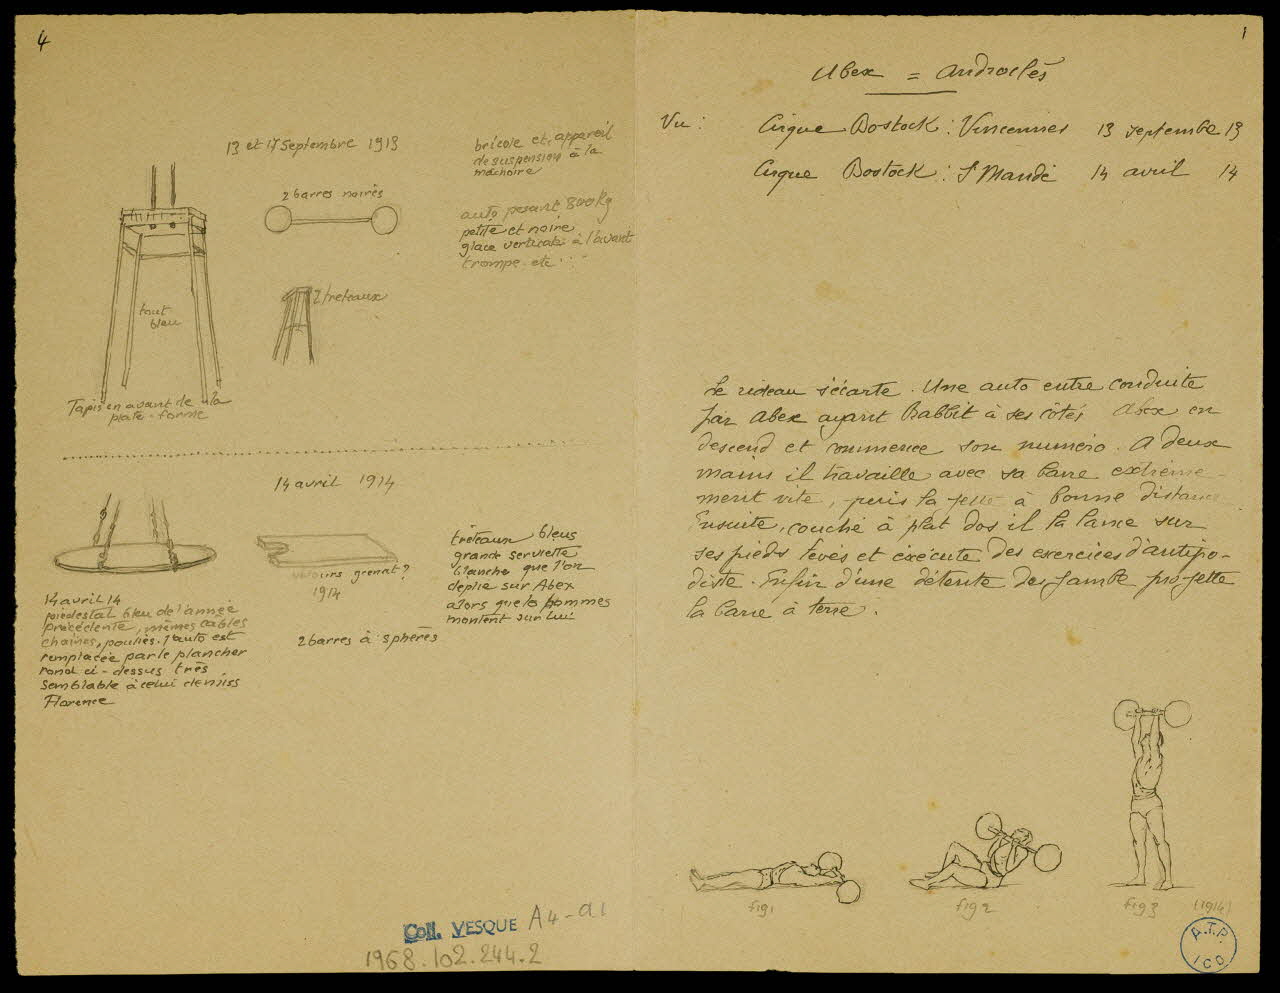 4
13 et 17 Septembre 1913
2 barres noires
bricole et appareil
de suspension à la
mâchoire
auto pesant 800 Kg
petite et noire
glace verticale à l'avant
trompe. etc...
2 treteaux
tout
bleu
Tapis en avant de la
plate-forme
14 avril 1914
velours grenat?
1914
2 barres à sphères
trêteaux bleus
grande serviette
blanche que l'on
déplie sur Abex
alors que les hommes
montent sur lui
14 avril 14
piédestal bleu de l'année
précédente, mêmes cables
chaines, poulies. l'auto est
remplacée par le plancher
rond ci-dessus très
semblable à celui de Miss
Florence
Coll. VESQUE A4-a1
1968.102.244.2
1
Abex = Androclès
Vu: Cirque Bostock: Vincennes 13 septembre 13
Cirque Bostock: St Mandé 14 avril 14
Le rideau s'écarte. Une auto entre conduite
par Abex ayant Rabbit à ses côtés Abex en
descend et commence son numéro. A deux
mains il travaille avec sa barre extrême-
ment vite, puis la jette à bonne distance
Ensuite, couché à plat dos il la lance sur
ses pieds levés et exécute des exercices d'antipo-
diste. Enfin d'une détente de jambe projette
la barre à terre.
fig 1
fig 2
fig 3
(1914)
A.T.P.
ICO